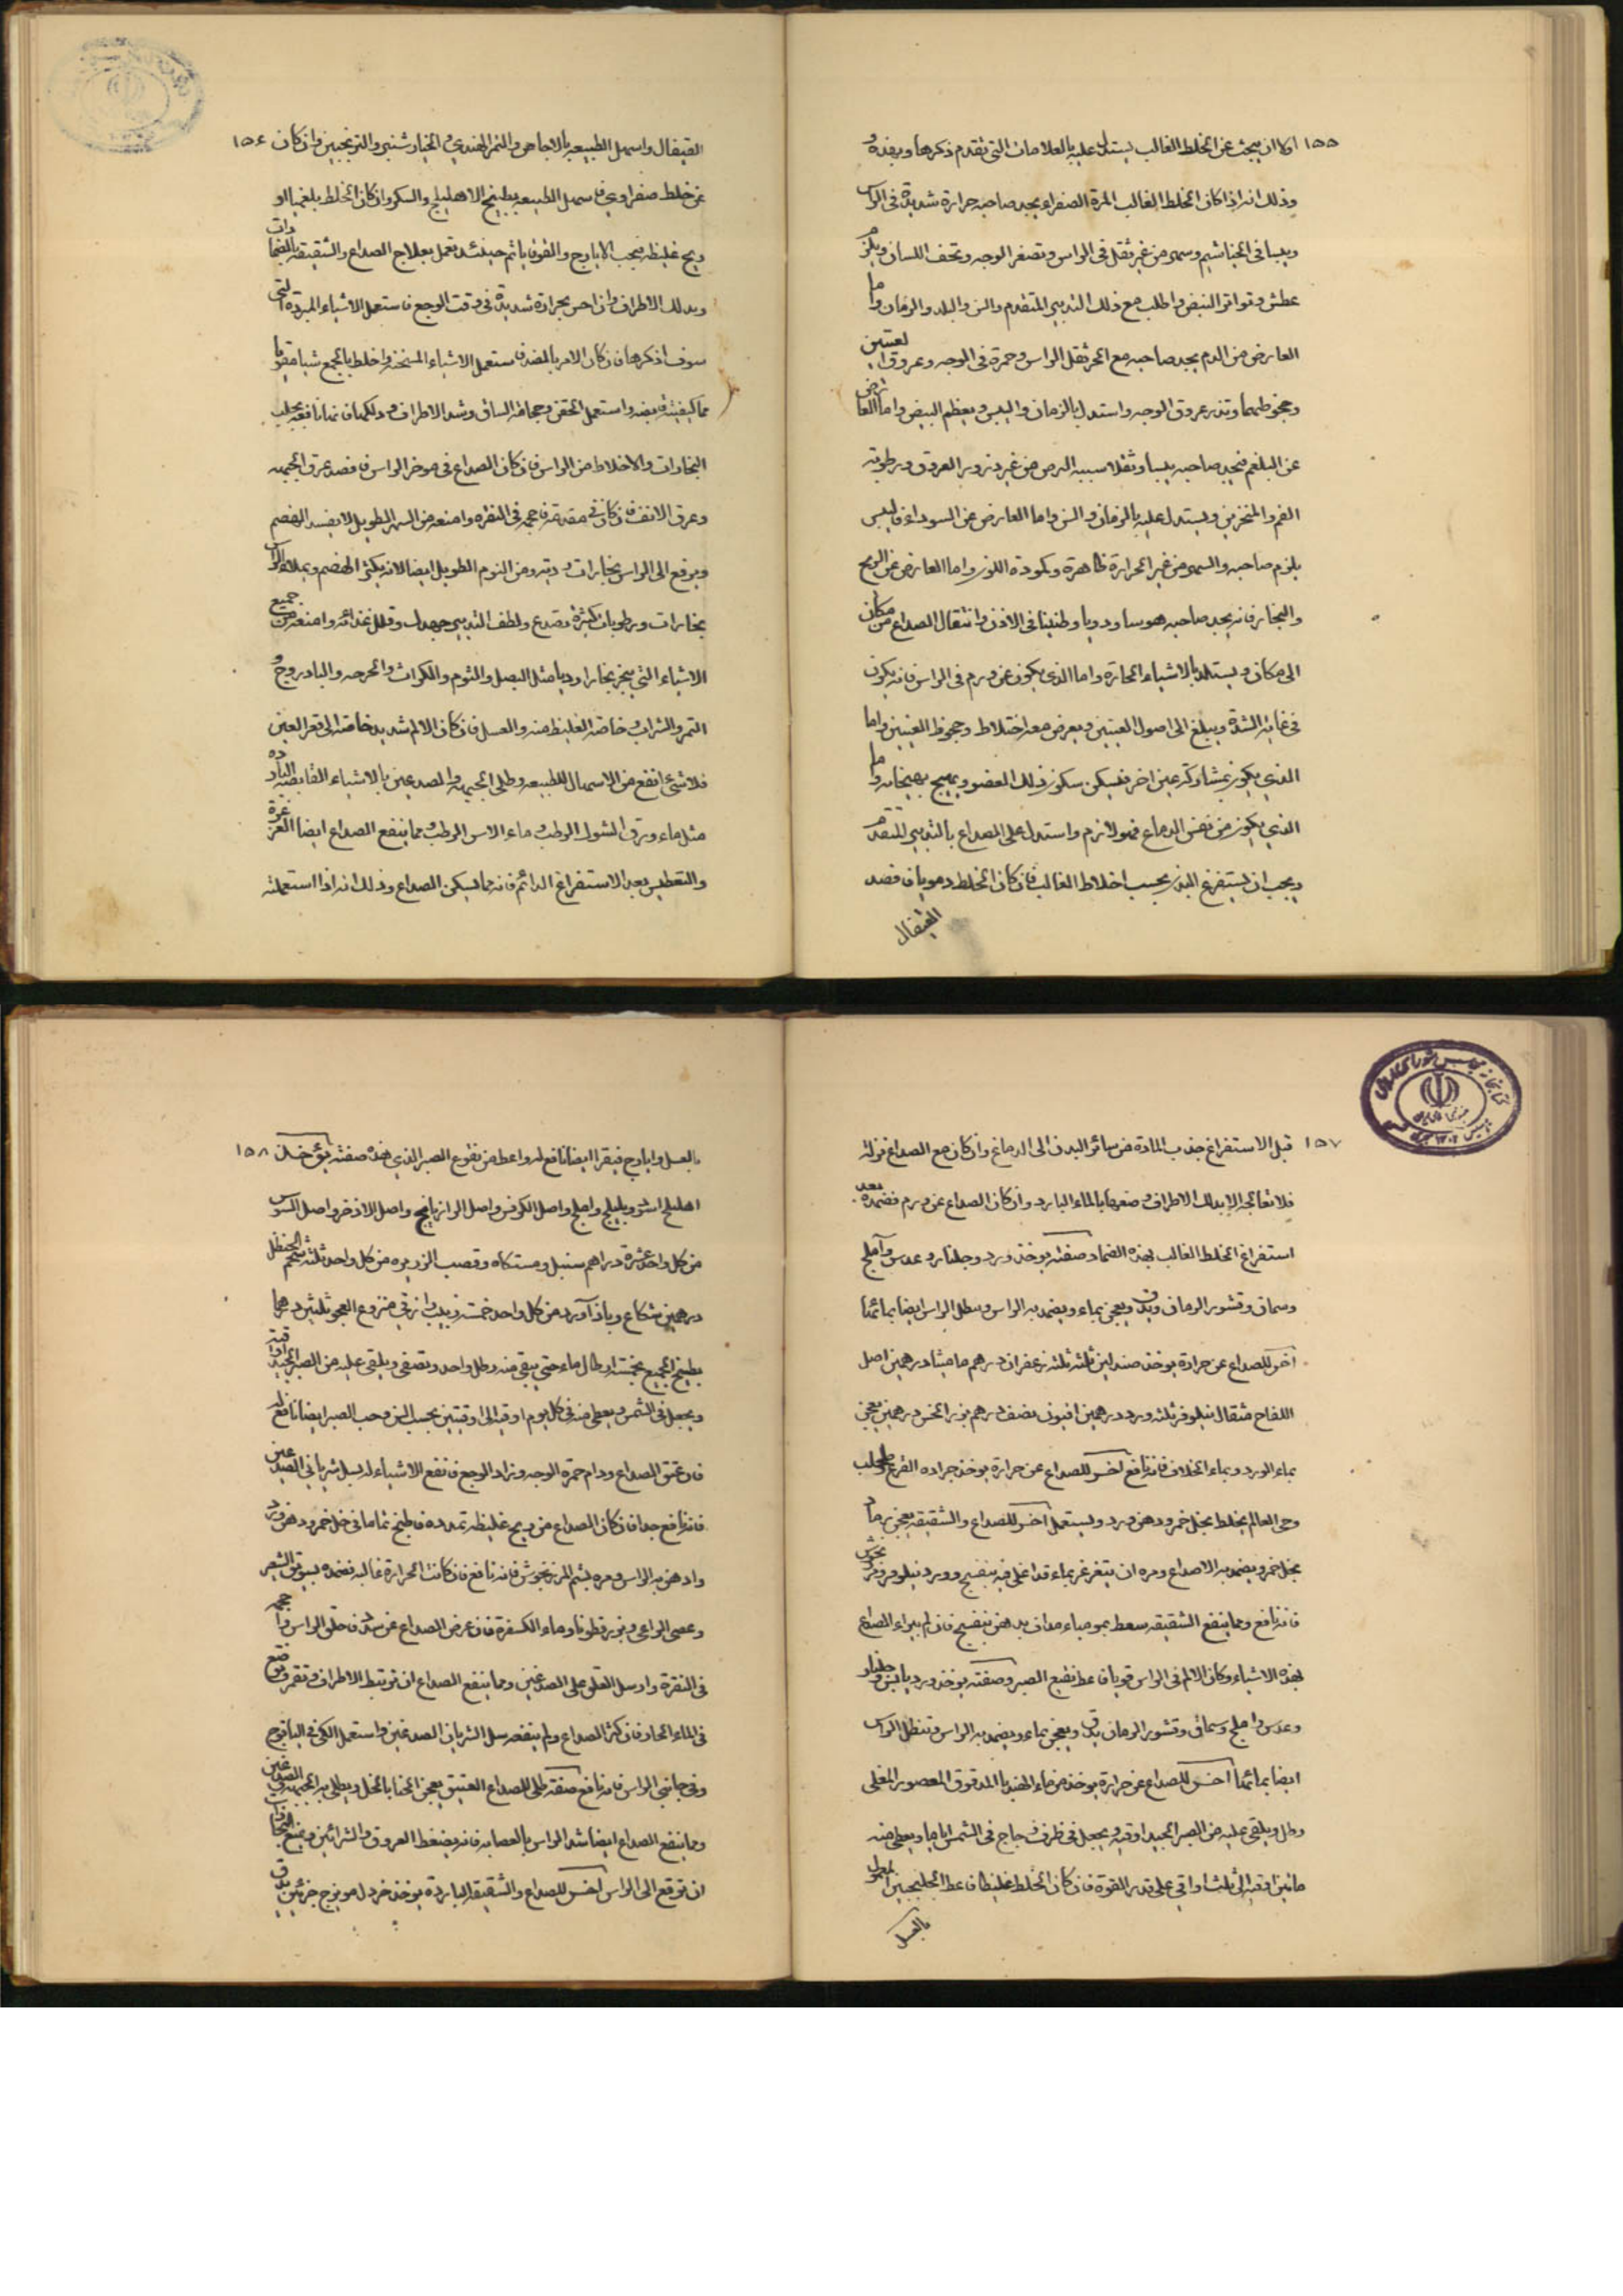 ١٥٥ اولا ان يبحث عن الخلط الغالب يستدل عليه بالعلامات التي تقدم ذكرها
وذلك انه اذا كان الخلط الغالب المرة الصفراء يجد صاحبه حرارة شديدة في الراس
ويبسا في الخياشيم وسهر من غير ثقل في الراس وتصفر الوجه وتجف اللسان ويلزم
عطش وتواتر النبض واطلب مع ذلك التدبير المتقدم والسن والبلد والزمان واما
العارض من الدم يجد صاحبه مع الحر ثقل الراس وحمرة في الوجه وعروق العينين
وجحوظهما وتدر عروق الوجه واستدل بالزمان والسن ويعظم النبض واما العارض
عن البلغم فيجد صاحبه وثقلا من غير درور العروق ورطوبة
الفم والمنخرين ويستدل عليه بالزمان والسن واما العارض عن السوداء فاليبس
يلزم صاحبه والسهر من غير الحرارة ظاهرة وبكمودة اللون واما العارض عن الريح
والبخار فانه يجد صاحبه هوسا ودويا وطنينا في الاذن وانتقال الصداع من مكان
الى مكان ويستلذ بالاشياء الحارة واما الذي يكون عن ورم في الراس فانه يكون
في غاية الشدة ويبلغ الى اصول العينين ويعرض معه اختلاط وجحوظ العينين واما
الذي يكون بمشاركة عضو اخر فيسكن بسكون ذلك العضو ويهيج بهيجانه واما
الذي يكون من نفس الدماغ فهو لازم واستدل على الصداع بالتدبير المتقدم
ويجب ان يستفرغ البدن بحسب اخلاط الغالب فان كان الخلط دمويا فافصد
القيفال
القيفال واسهل الطبيعة بالاجاص والتمر الهندي والخيارشنبر والترنجبين وان كان ١٥٦
عن خلط صفراوي فاسهل الطبيعة بطبيخ الاهليلج والسكر وان كان الخلط بلغميا او
ريح غليظة فبحب الايارج والقوقايا ثم حينئذ تعمل بعلاج الصداع والشقيقة بالضمادات
وبدلك الاطراف وان احس بحرارة شديدة في وقت الوجع فاستعمل الاشياء المبردة التي
سوف اذكرها فان كان الامر بالضد فاستعمل الاشياء المسخنة واخلط بالجميع شيا مقويا
مما كيفيته قابضة واستعمل الحقن وحجامة الساق وشد الاطراف ودلكهما فانها نافعة يجلب
البخارات والاخلاط من الراس فان كان الصداع في موخر الراس فافصد عرق الجبهة
وعرق الانف فان كان في مقدمه فاحجمه في النقرة وامنعه من السهر الطويل لانه يفسد الهضم
ويرفع الى الراس بخارات ردية ومن النوم الطويل ايضا لانه يكثر الهضم ويملاء الراس
بخارات ورطوبات كثيرة فتصدع ولطف التدبير جهدك وقلل غذائه وامنعه من جميع
الاشياء التي يبخر بخارا رديا مثل البصل والثوم والكراث والجرجير والبادروج و
التمر والشراب وخاصة الغليظ منه والعسل فان كان الالم شديد خاصة الى قعر العين
فلا شئ انفع من الاسهال للطبيعة وطلي الجبهة والصدغين بالاشياء القابضة الباردة
مثل ماء ورق الشوك الرطب وماء الاس الرطب ومما ينفع الصداع ايضا الغرغرة
والتعطيس بعد الاستفراغ الدائم فانه مما يسكن الصداع وذلك انه اذا استعملته
١٥٧ قبل الاستفراغ جذب المادة من سائر البدن الى الدماغ وان كان مع الصداع نزلة
فلا تعالجه الا بدلك الاطراف وضعها بالماء البارد وان كان الصداع عن ورم فضمده بعد
استفراغ الخلط الغالب بهذه الضماد صفته يوخذ ورد وجلنار وعدس واملج
وسماق وقشور الرمان ويدق ويعجن بماء ويضمد به الراس ويطل الراس ايضا بمائها
اخر للصداع عن حرارة يوخذ صندلين ثلثه ثلثه زعفران درهم ماميثا درهمين اصل
اللفاح مثقال نيلوفر ثلثه ورد درهمين افيون نصف درهم بزر الخس درهمين يعجن
بماء الورد وبماء الخلاف فانه نافع اخر للصداع عن حرارة يوخذ جرادة القرع وطحلب
وحي العالم يخلط بخل خمر ودهن ورد ويستعمل اخر للصداع والشقيقة يعجن برماد
بخل خمر ويضمد به الاصداغ ومره ان يتغرغر بماء قد اغلي فيه بنفسج وورد نيلوفر
فانه نافع ومما ينفع الشقيقة سعط بمومياء مداف بدهن بنفسج فان لم يبراء الصداع
بهذه الاشياء وكان الالم في الراس قويا فاعط نقيع الصبر وصفته يوخذ ورد يابس وجلنار
وعدس واملج وسماق وقشور الرمان يدق ويعجن بماء ويضمد به الراس وتنطل الراس
ايضا بمائها اخر للصداع عن حرارة يوخذ من ماء الهندبا المدقوق المعصور المغلى
رطل ويلقى عليه من الصبر الجيد اوقية ويجعل في ظرف زجاج في الشمس اياما ويعطى منه
مابين اوقية الى ثلث اواقي على قدر القوة فان كان الخلط غليظا فاعط الجلنجبين المعمول
بالعسل
بالعسل وايارج فيقرا ايضا نافع له واعط من نقوع الصبر الذي هذه صفته يؤخذ ١٥٨
اهليلج اسود وبليلج واملج واصل الكرفس واصل الرازيانج واصل الاذخر واصل السوس
من كل واحد عشرة دراهم سنبل ومستكاه وقصب الزريرة من كل واحد ثلثه شحم الحنظل
درهمين شكاع وباذآورد من كل واحد خمسه زبيب رازقي منزوع العجم ثلثين درهما
يطبخ الجميع بخمسة ارطال ماء حتى يبقى منه رطل واحد ويصفى ويلقى عليه من الصبر الجيد اوقية
ويجعل في الشمس ويعطى منه في كل يوم اوقية الى اوقيتين بحسب السن وحب الصبر ايضا نافع له
فان عتق الصداع ودام حمرة الوجه وزاد الوجع فانفع الاشياء له بسل شرياني الصدغين
فانه نافع جدا فان كان الصداع من ريح غليظة تمدده فاطبخ نماما في خل خمر ودهن ورد
وادهن به الراس ومره بشم المرزنجوش فانه نافع فان كانت الحرارة غالبه فضمده بسويق الشعير
وعصى الراعي وبزر قطونا وماء الكسفرة فان عرض الصداع عن سدد فاحلق الراس واحجمه
في النقرة وارسل العلق على الصدغين ومما ينفع الصداع ان ترتبط الاطراف وتغمر وتوضع
في الماء الحار فان كثر الصداع ولم ينفعه سل الشرياني الصدغين واستعمل الكي في اليافوخ
وفي جانبي الراس فانه نافع صفة طلى للصداع العتيق يعجن الحنا بالخل ويطلى به الجبهة والصدغين
ومما ينفع الصداع ايضا شد الراس بالعصابة فانه يضغط العروق والشرائين ويمنع البخارات
ان ترتفع الى الراس اخر للصداع والشقيقة الباردة يوخذ خردل مويزج جزئين يدق